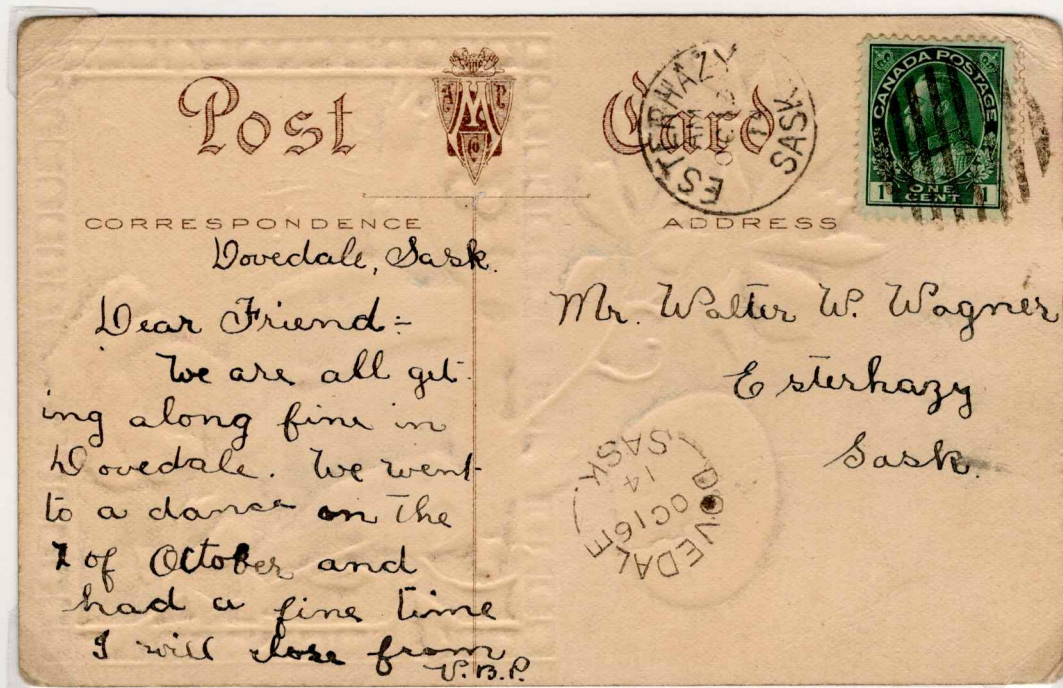 Post Card
A M C
Co
ESTERHAZY
SASK
CANADA POSTAGE
1 ONE CENT 1
CORRESPONDENCE
ADDRESS
Dovedale, Sask.
Dear Friend:-
We are all get-
ing along fine in
Dovedale. We went
to a dance on the
2 of October and
had a fine time
I will close from
V.B.P.
Mr. Walter W. Wagner
Esterhazy
Sask.
DOVEDALE
OC 16
14
SASK